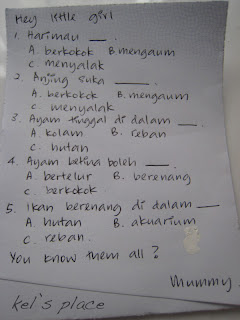 Hey little girl
1. Harimau ___.
A. berkokok B. mengaum
C. menyalak
2. Anjing suka ____.
A. berkokok B. mengaum
C. menyalak
3. Ayam tinggal di dalam ___.
A. kolam B. reban
C. hutan
4. Ayam betina boleh ___.
A. bertelur B. berenang
C. berkokok
5. Ikan berenang di dalam ___
A. hutan B. akuarium
C. reban.
You know them all?
Mummy.
kel's place